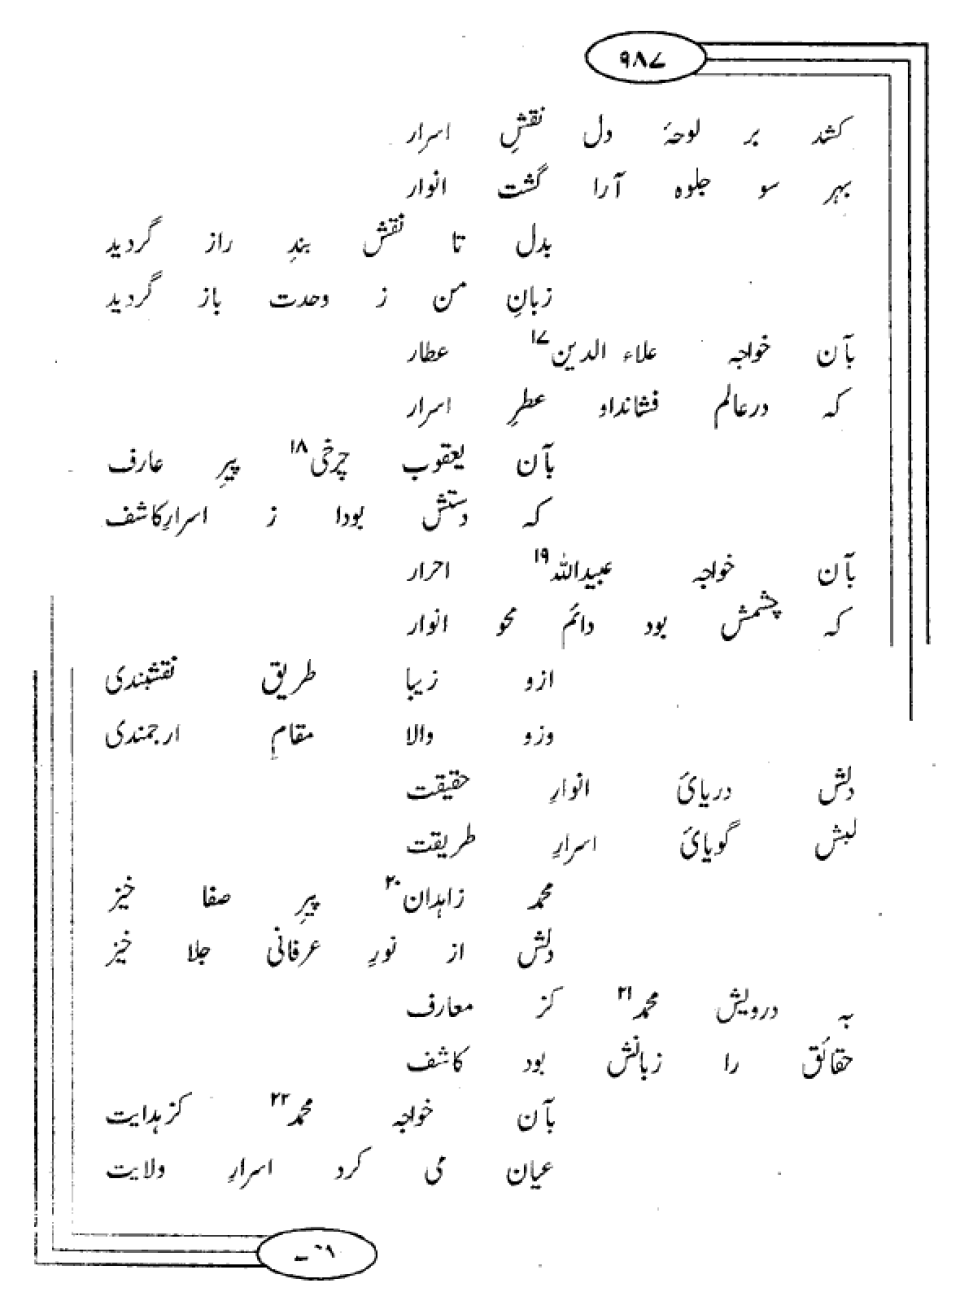 ۹۸۷
کشد بر لوحۂ دل نقشِ اسرار
بہر سو جلوہ آرا گشت انوار
بدل تا نقش بندِ راز گردید
زبانِ من ز وحدت باز گردید
بآن خواجہ علاء الدین۱۷ عطار
کہ درعالم فشانداو عطرِ اسرار
بآن یعقوب چرخی۱۸ پیرِ عارف
کہ دستش بودا ز اسرارِکاشف
بآن خواجہ عبیداللہ۱۹ احرار
کہ چشمش بود دائم محو انوار
ازو زیبا طریق نقشبندی
وزو والا مقامِ ارجمندی
دلش دریائ انوارِ حقیقت
لبش گویائ اسرارِ طریقت
محمد زاہدان۲۰ پیرِ صفا خیز
دلش از نورِ عرفانی جلا خیز
بہ درویش محمد۲۱ کز معارف
حقائق را زبانش بود کاشف
بآن خواجہ محمد۲۲ کزہدایت
عیان می کرد اسرارِ ولایت